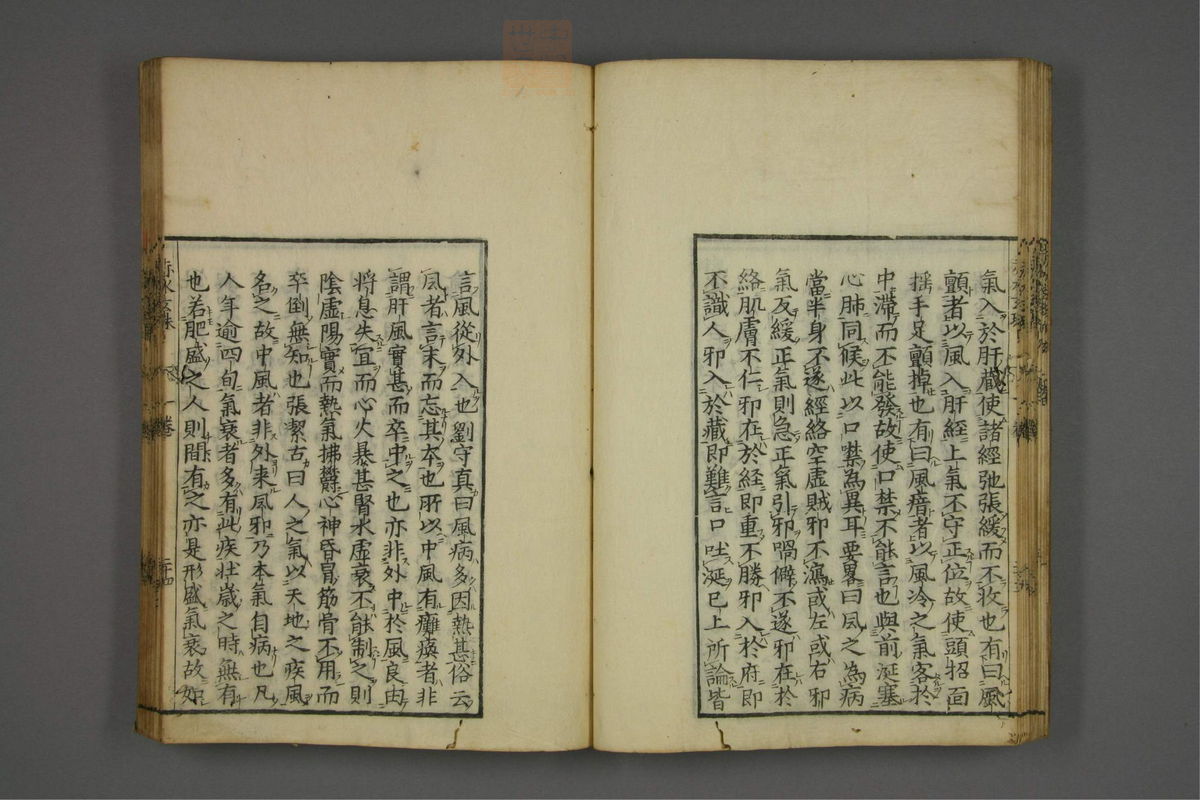 氣入於肝藏使諸經弛張緩而不收也有曰風
顫者以風入肝經上氣不守正位故使頭招面
搖手足顫掉也有曰風瘖者以風冷之氣客於
中滯而不能發故使口禁不能言也與前涎塞
心肺同候此以口噤為異耳要畧曰風之為病
當半身不遂經絡空虛賊邪不瀉或左或右邪
氣反緩正氣則急正氣引邪喎僻不遂邪在於
絡肌膚不仁邪在於経即重不勝邪入於府即
不識人邪入於藏即難言口吐涎已上所論皆
言風從外入也劉守真曰風病多因熱甚俗云
風者言末而忘其本也所以中風有癱瘓者非
謂肝風實甚而卒中之也亦非外中於風良由
將息失宜而心火暴甚腎水虛衰不能制之則
陰虛陽實而熱氣拂欝心神昏冒筋骨不用而
卒倒無知也張潔古曰人之氣以天地之疾風
名之故中風者非外来風邪乃本氣自病也凡
人年逾四旬氣衰者多有此疾壮歳之時無有
也若肥盛之人則間有之亦是形盛氣衰故如
赤水玄珠 卷 二十四